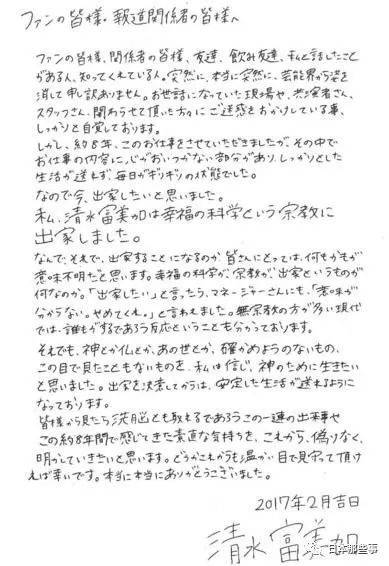 ファンの皆様。報道関係者の皆様へ
ファンの皆様、関係者の皆様、友達、飲み友達、私と話したこと
がある人、知ってくれている人。突然に、本当に突然に、芸能界から姿を
消して申し訳ありません。お世話になっていた現場や、共演者さん、
スタッフさん、関わらせて頂いた方々にご迷惑をおかけしている事、
しっかりと自覚しております。
しかし、約8年、このお仕事をさせていただきましたが、その中で
お仕事の内容に、心がおいつかない部分があり、しっかりとした
生活が送れず、毎日がギリギリの状態でした。
なので今、出家したいと思いました。
私、清水富美加は幸福の科学という宗教に
出家しました。
なんで、それで、出家することになるのか、皆さんにとっては、何もかもが
意味不明だと思います。幸福の科学が、宗教が、出家というものが
何なのか。「出家したい」と言ったら、マネージャーさんにも、「意味が
分からない。やめてくれ。」と言われました。無宗教の方が多い現代
では、誰もがするであろう反応ということも分かっております。
それでも、神とか仏とか、あの世とか、確かめようのないもの、
この目で見たこともないものを、私は信じ、神のために生きたい
と思いました。出家を決意してからは、安定した生活が送れるように
なっております。
皆様から見たら洗脳とも取れるであろうこの一連の出来事や
この約8年間で感じてきた素直な気持ちを、これから、偽りなく、
明かしていきたいと思います。どうかこれからも温かい目で見守って頂け
れば幸いです。本当に本当にありがとうございました。
2017年2月吉日
清水富美加
日本那些事